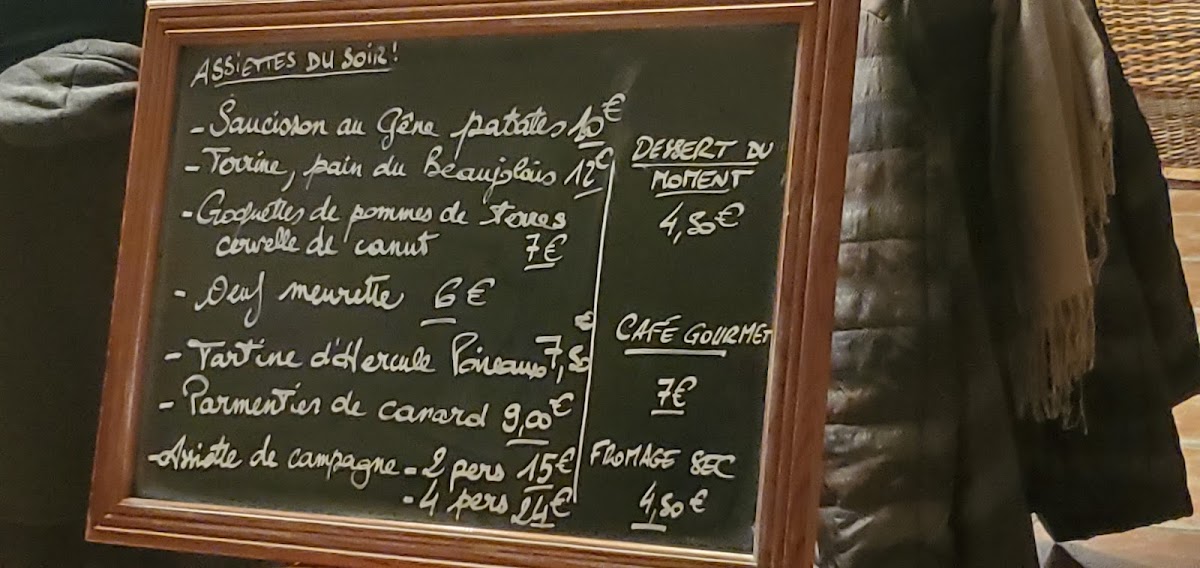 ASSIETTES DU SOIR!
- Saucisson au Gêne patates 10€
- Terrine, pain du Beaujolais 12€
- Croquettes de pommes de terres
cervelle de canut 7€
- Oeuf meurette 6€
- Tartine d'Hercule Poireaux 7,80€
- Parmentier de canard 9,00€
- Assiette de campagne - 2 pers 15€
- 4 pers 24€
DESSERT DU
MOMENT
4,80€
CAFÉ GOURMET
7€
FROMAGE SEC
4,80€